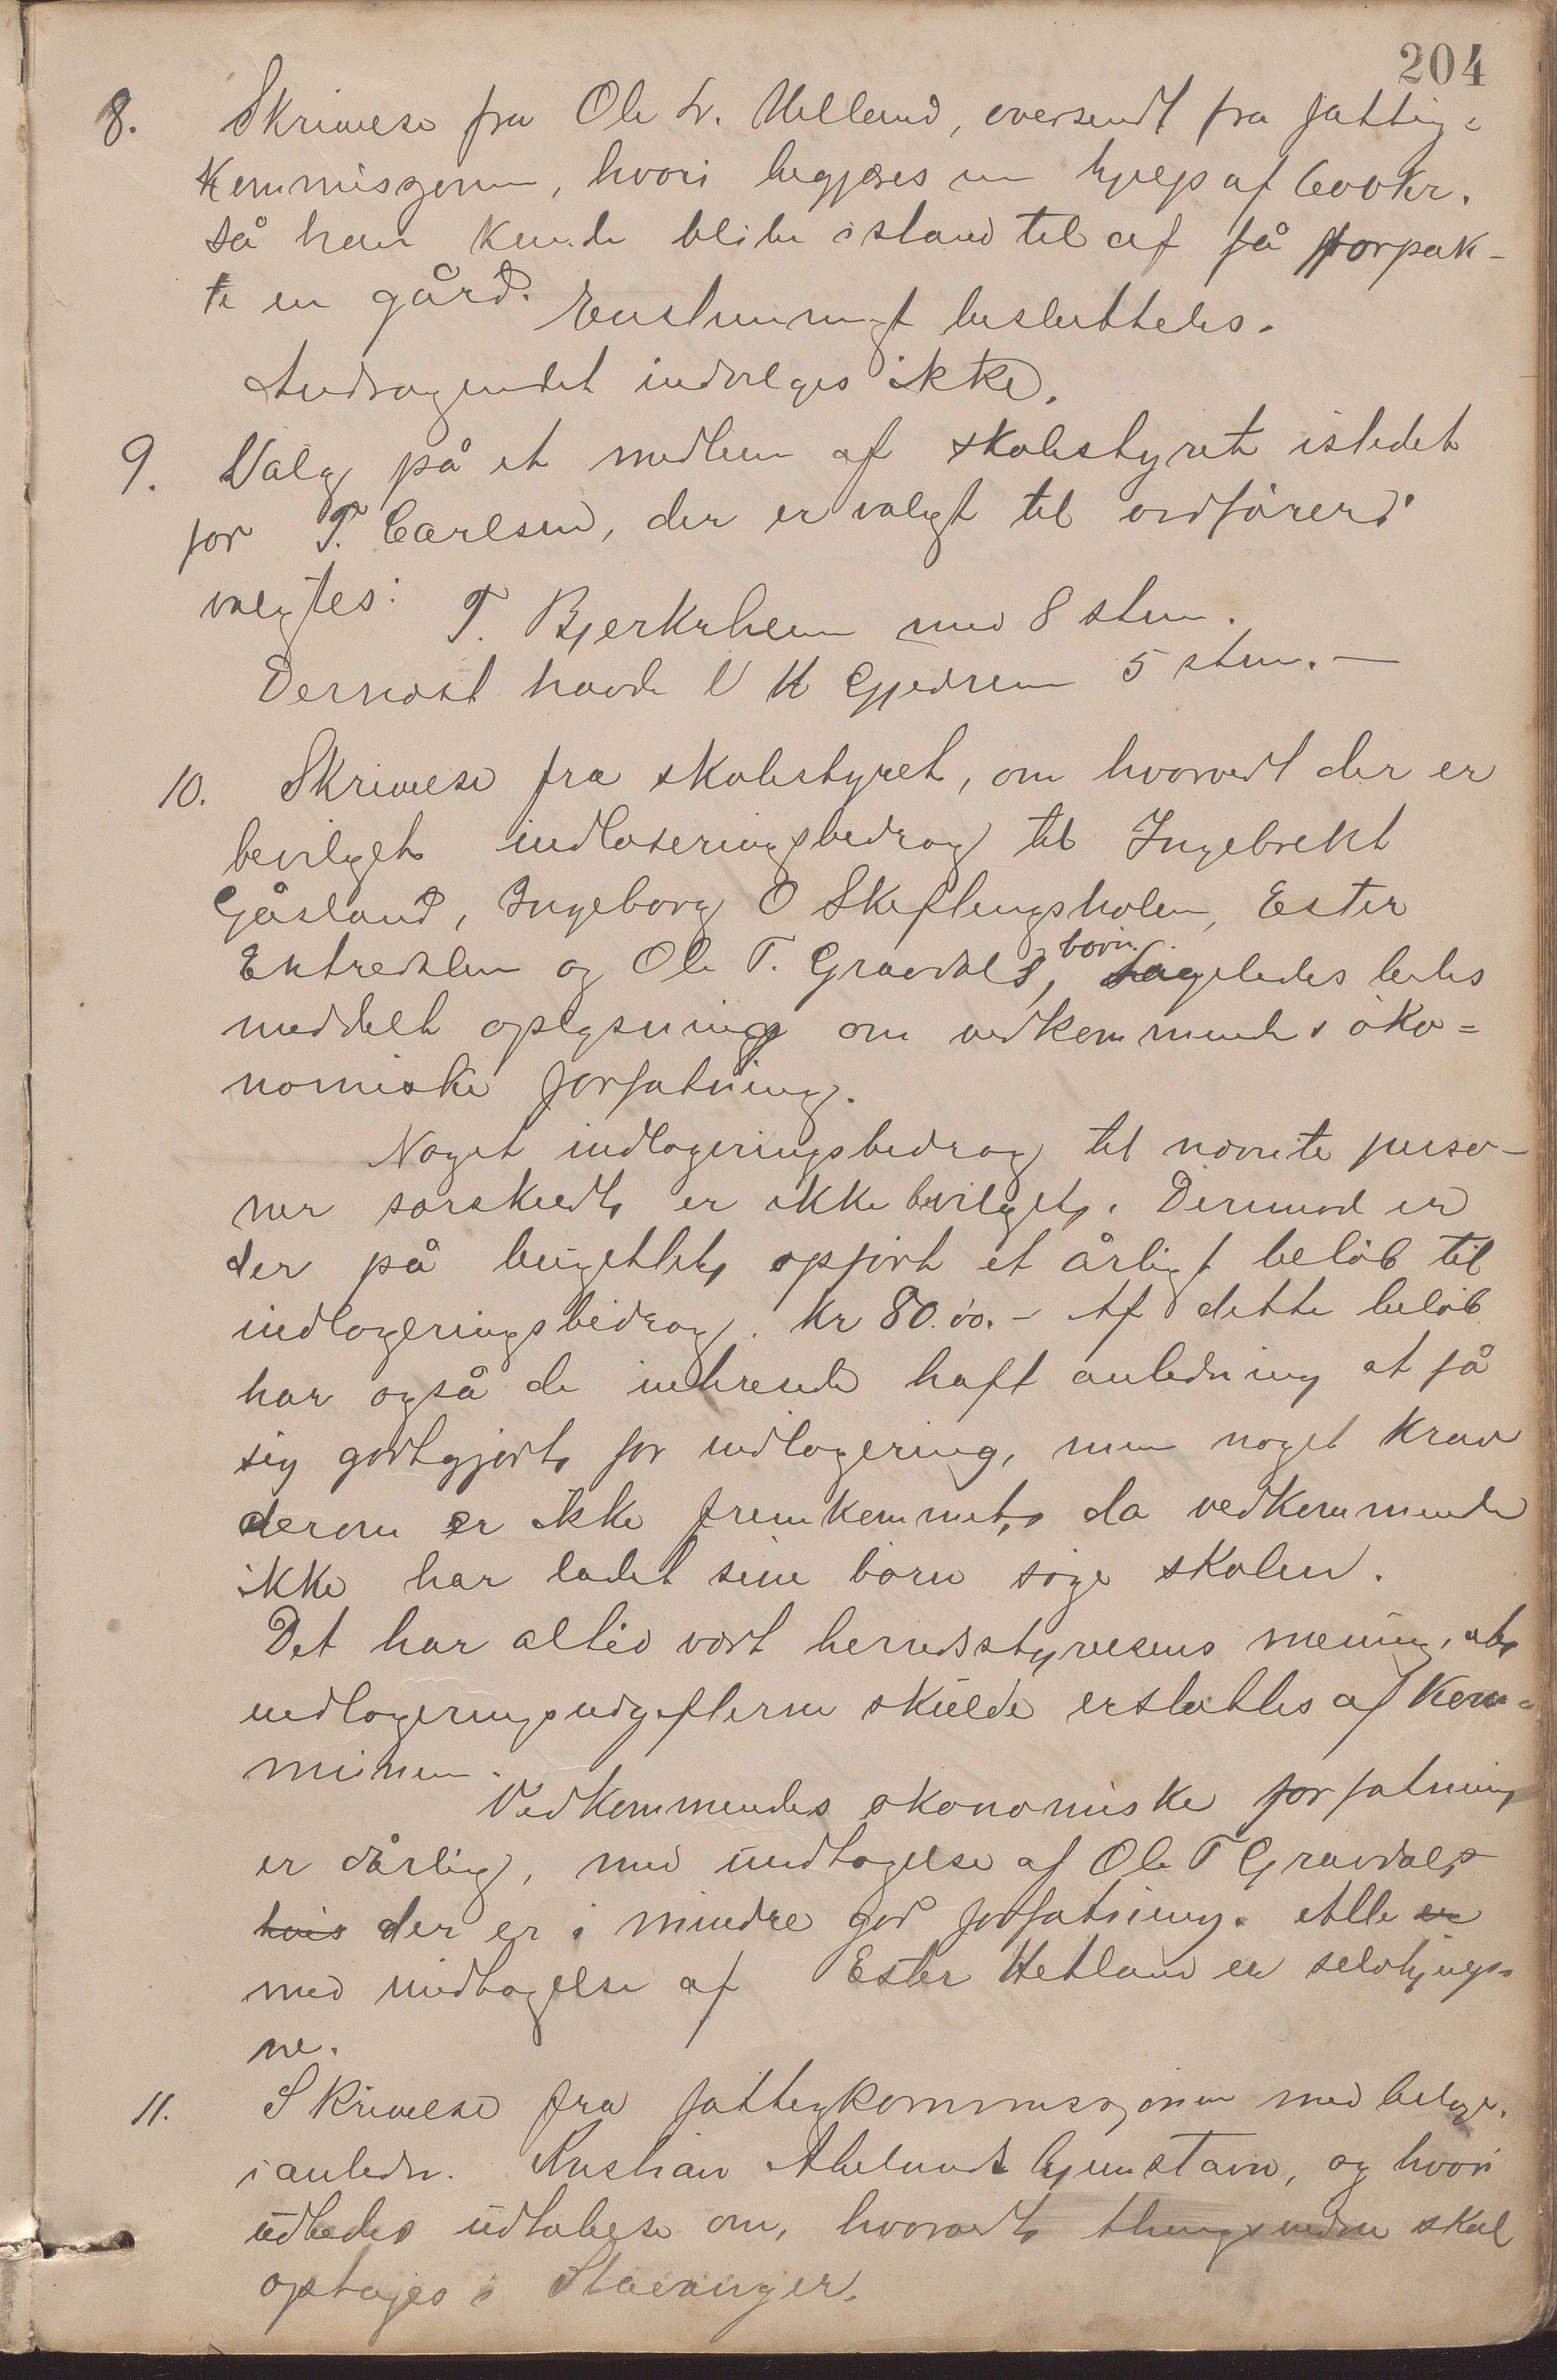 204
8. Skrivelse fra Ole L. Helland, oversendt fra fattig=
kommisjonen, hvori begjæres en hjelp af 600 kr.
så han kunde blive istand til at få forpak-
te en gård. Enstemmigt besluttedes.
Andragendet indvilges ikke.
9. Valg på et medlem af skolestyret istedet
for T. Carlsen, der er valgt til ordfører:
valgtes: T. Bjerkrheim med 8 stem.
Dernæst havde V H Gjedrem 5 stem. —
10. Skrivelse fra skolestyret, om hvorvidt der er
bevilget indlosieringsbidrag til Ingebrekt
Gåsland, Ingeborg O Skeflengsholen, Ester
Ektredalen og Ole T. Gravdals børn, ligeledes bedes
meddelt oplysning om vedkommendes øko=
nomiske forfatning.
Noget indlogeringsbidrag til nævnte perso-
ner særskildt er ikke bevilget. Derimod er
der på bugettet opført et årligt beløb til
indlogeringsbidrag. Kr 80.00. – Af dette beløb
har også de indresende haft anledning at få
sig godtgjort for indlogering, men noget krav
derom er ikke fremkommet, da vedkommende
ikke har ladet sine børn søge skolen.
Det har altid vært herredsstyrelsens mening, at
indlogeringsudgifterne skulde erstattes af kom=
munen.
Vedkommendes økonomiske forfatning
er dårlig, med undtagelse af Ole T Gravdal,
hvis der er i mindre god forfatning. Alle er
med undtagelse af Ester Hetland er selvhjulp=
ne.
11. Skrivelse fra fattigkommissjonen med bilage.
i anledn. Kristian Aabelunds hjemstavn, og hvori
udbedes udtalelse om, hvorvidt thingsvidne skal
optages i Stavanger.